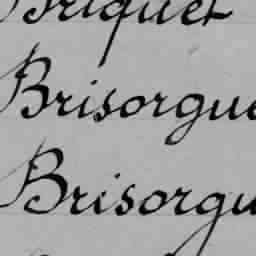 Briquet
Brisorgue
Brisorgu